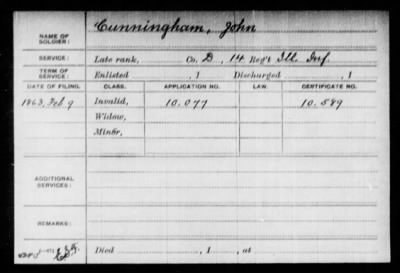 NAME OF SOLDIER: Cunningham, John
SERVICE: Late rank, Co. D, 14 Reg't Ill. Inf.
TERM OF SERVICE: Enlisted , 1 Discharged , 1
DATE OF FILING. CLASS. APPLICATION NO. LAW. CERTIFICATE NO.
1863, Feb 9 Invalid, 10.077 10.589
Widow,
Minor,
ADDITIONAL SERVICES:
REMARKS:
Died , 1 , at